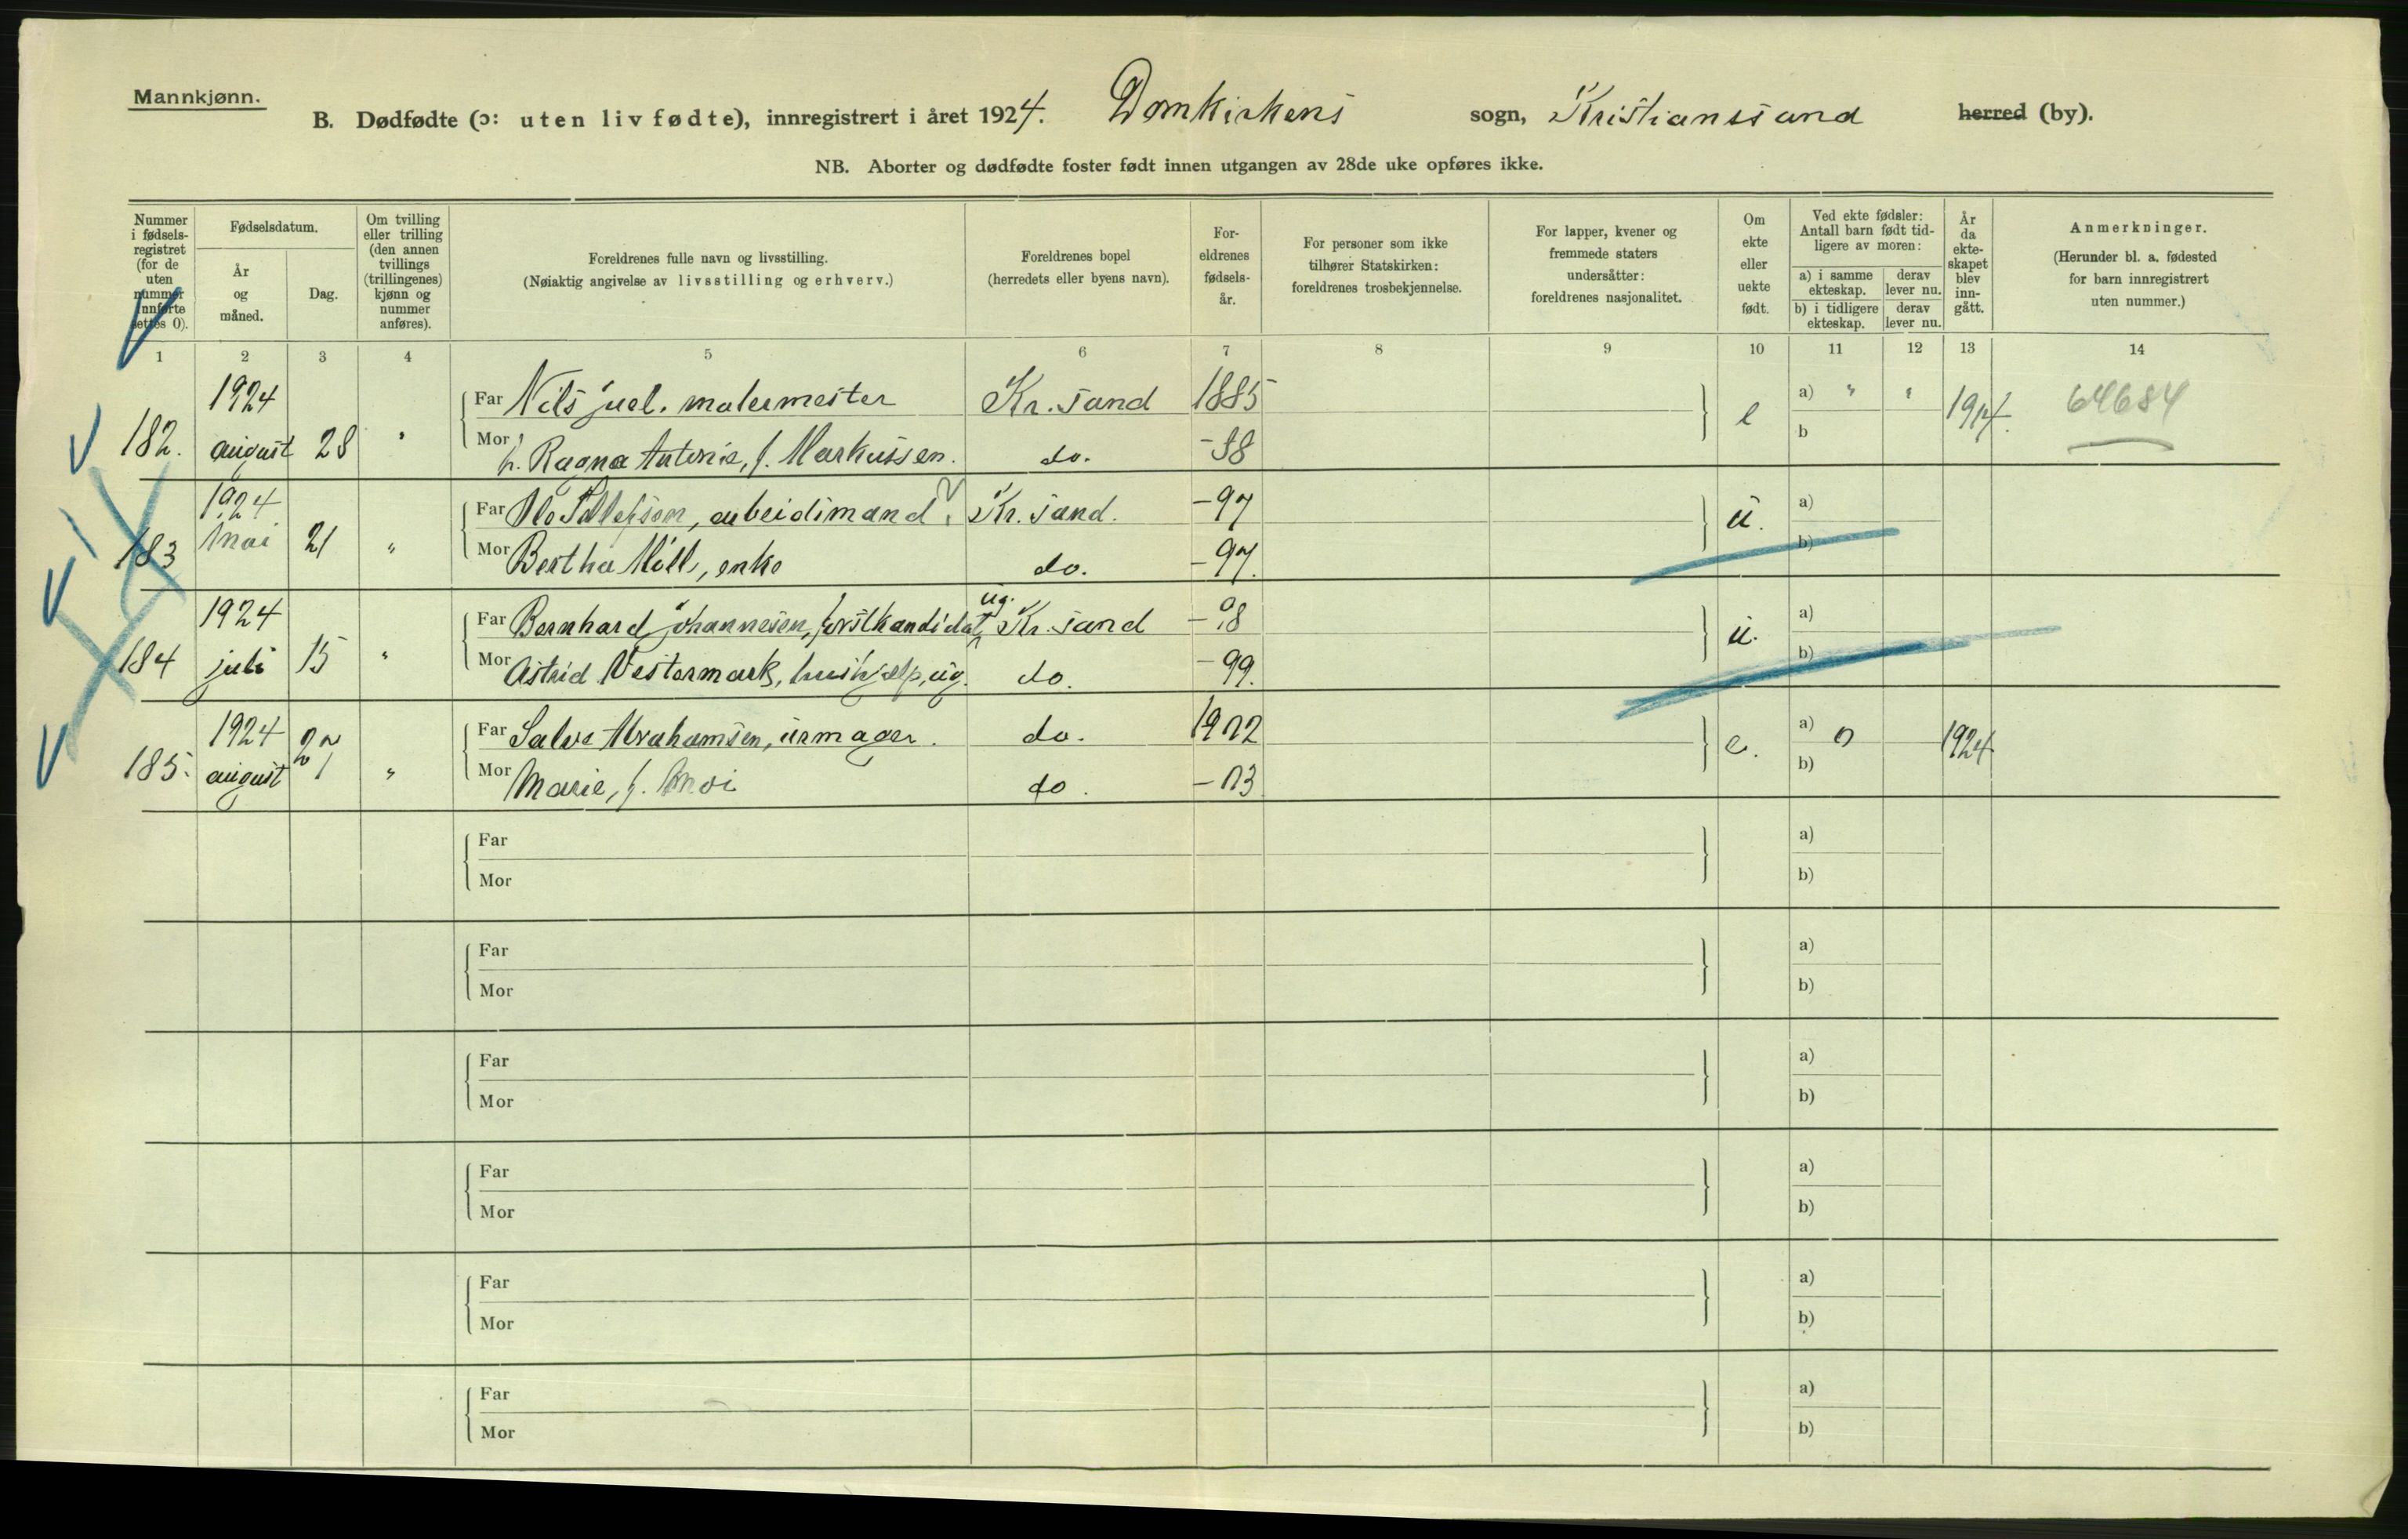 Mannkjønn.
B. Dødfødte (ɔ: uten liv fødte), innregistrert i året 1924. Domkirkens sogn, Kristianssand herred (by).
NB. Aborter og dødfødte foster født innen utgangen av 28de uke opføres ikke.
Nummer i fødsels-registret (for de uten nummer innførte settes 0).
Fødselsdatum.
År og måned.
Dag.
Om tvilling eller trilling (den annen tvillings (trillingenes) kjønn og nummer anføres).
Foreldrenes fulle navn og livsstilling.
(Nøiaktig angivelse av livsstilling og erhverv.)
Foreldrenes bopel
(herredets eller byens navn).
For-eldrenes fødsels-år.
For personer som ikke tilhører Statskirken: foreldrenes trosbekjennelse.
For lapper, kvener og fremmede staters undersåtter: foreldrenes nasjonalitet.
Om ekte eller uekte født.
Ved ekte fødsler: Antall barn født tid-ligere av moren:
a) i samme ekteskap.
derav lever nu.
b) i tidligere ekteskap.
derav lever nu.
År da ekte-skapet blev inn-gått.
Anmerkninger.
(Herunder bl. a. fødested for barn innregistrert uten nummer.)
1 2 3 4 5 6 7 8 9 10 11 12 13 14
182. 1924 august 28 "
Far Nils Juel. malermester Kr.sand 1885
Mor h. Ragna Antonie, f. Markussen. do. -88
e a) " " b 64684
183 1924 mai 21 "
Far arbeidsmand Kr.sand. -97
Mor Bertha enke do. -97.
u. a) b)
184 1924 juli 15 "
Far Bernhard Johannesen, forstkandidat, ug. Kr.sand -98
Mor Astrid Vestermark, hushjelp, ug. do. -99.
u. a) b)
185. 1924 august "
Far Salve Abrahamsen, urmager. do. 1902
Mor Marie, f. Moi do. -03
e. a) 0 b) 1924
Far a)
Mor b)
Far a)
Mor b)
Far a)
Mor b)
Far a)
Mor b)
Far a)
Mor b)
Far a)
Mor b)